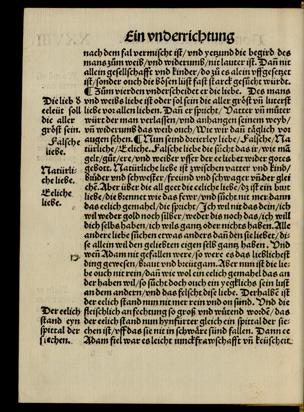 Ein vnderrichtung
nach dem fal vermischt ist/ vnd yetzund die begird des
mans zům weiß/ vnd widerumb/ nit lauter ist. Dañ nit
allein gesellschafft vnd kinder/ do zů es alein vffgesetzt
ist/ sonder ouch die bösen lust fast starck gesůcht würdt.
¶ Zům vierden vnderscheidet er die liebe. Des mans
vnd weibs liebe ist oder sol sein die aller gröst vñ luterst
liebe vor allen lieben. Dañ er spricht/ Vatter vñ můter
würt der man verlassen/ vnd anhangen seinem weyb/
vñ widerumb das weib ouch/ Wie wir dañ täglich vor
augen sehen. ¶ Nun seind dreierley liebe/ Falsche/ Na
türliche/ Eeliche. Falsche liebe die sücht das ir/ wie mã
gelt/ gůt/ ere/ vnd weiber vsser der ee liebet wider gottes
gebott. Natürliche liebe ist zwischen vatter vnd kind/
brüder vnd schwester/ freünd vnd schwager vñ der glei
chẽ. Aber über die all geet die eeliche liebe/ dz ist ein brut
liebe/ die brennet wie das fewr/ vnd sücht nit mer dann
das eelich gemahel/ die spricht/ Ich wil nit das dein/ ich
wil weder gold noch silber/ weder dis noch das/ ich will
dich selbs haben/ ich wils gantz oder nichts haben. Alle
andere liebe süchen etwas anders dañ den sie liebet/ di-
se allein wil den geliebten eigen selbs gantz haben. Vnd
weñ Adam nit gefallen were/ so were es das lieblichest
ding gewesen/ braut vnd breütgam. Aber nun ist die lie-
be ouch nit rein/ dañ wie wol ein eelich gemahel das an
der haben wil/ so sücht doch ouch ein yegklichs sein lust
an dem andern/ vnd das felscht dise liebe. Derhalbẽ ist
der eelich stand nun nit mer rein vnd on sünd. Vnd die
fleischlich anfechtung so groß vnd wütend worden/ das
der eelich stand nun hynfürter gleich ein spittal der sie-
chen ist/ vff das sie nit in schwäre sünd fallen. Dann ee
Adam fiel war es leicht iunckfrawschafft vñ keüscheit
Die lieb d
eeleüt soll
die aller
gröst sein.
Falsche
liebe.
Natürli-
che liebe.
Eeliche
liebe.
Der eelich
stand eyn
spittal der
siechen.